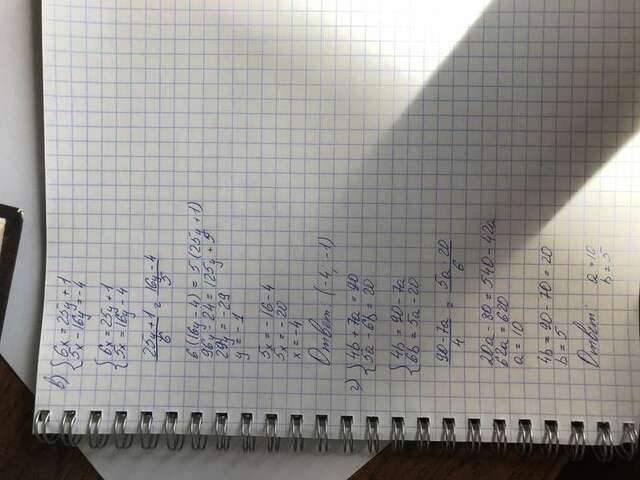 в) { 6x = 25y + 1
5x - 16y = -4
{ 6x = 25y + 1
5x = 16y - 4
(25y + 1)/6 = (16y - 4)/5
6(16y - 4) = 5(25y + 1)
96y - 24 = 125y + 5
29y = -29
y = -1
5x = -16 - 4
5x = -20
x = -4
Ответ: (-4; -1)
г) { 4b + 7a = 90
5a - 6b = 20
{ 4b = 90 - 7a
6b = 5a - 20
(90 - 7a)/4 = (5a - 20)/6
20a - 80 = 540 - 42a
62a = 620
a = 10
4b = 90 - 70 = 20
b = 5
Ответ: a = 10
b = 5